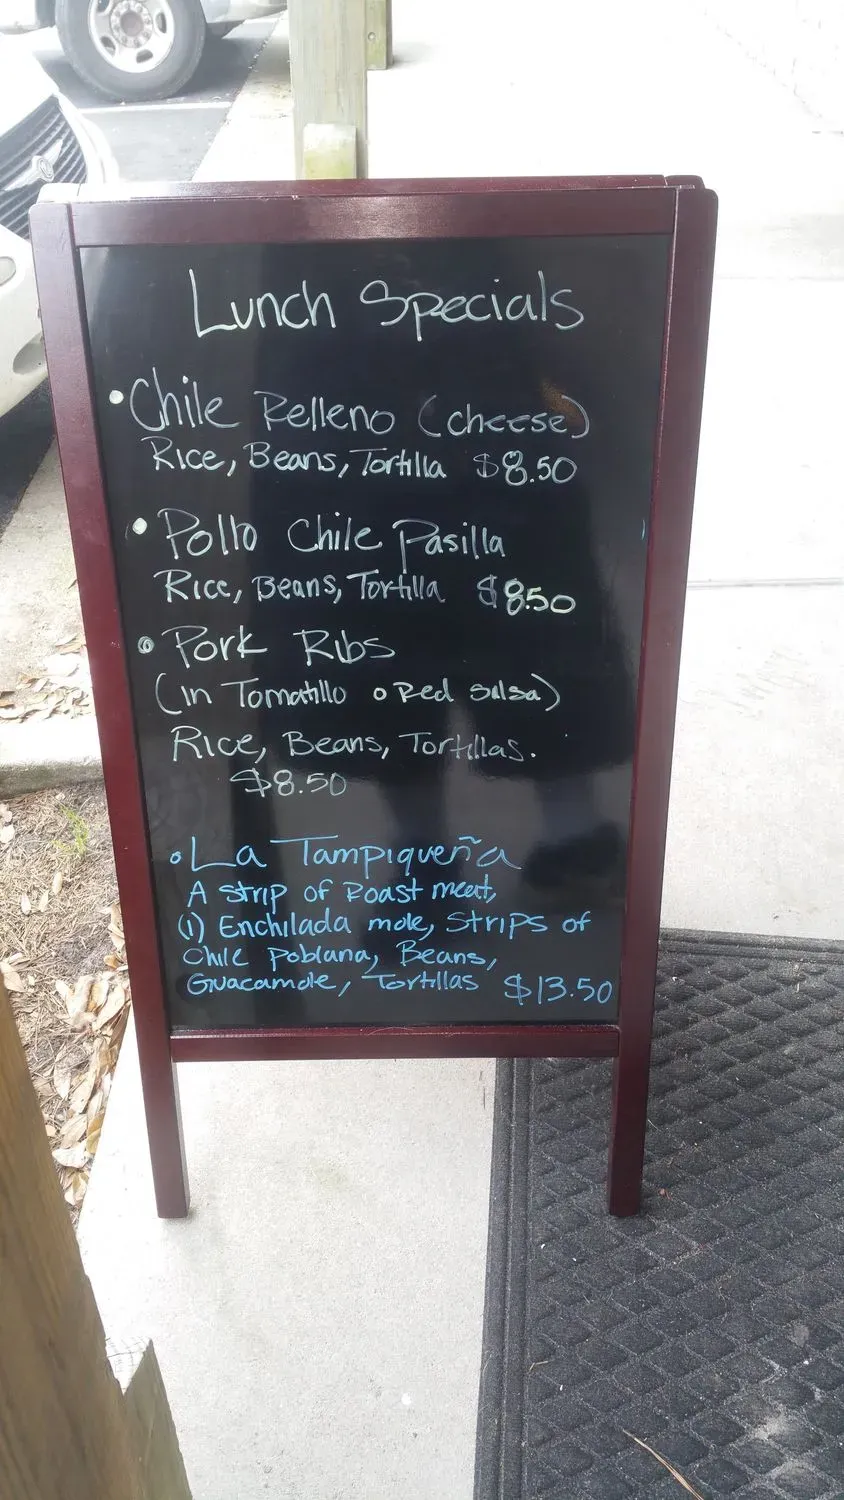 Lunch Specials
• Chile Relleno (cheese)
Rice, Beans, Tortilla $8.50
• Pollo Chile Pasilla
Rice, Beans, Tortilla $8.50
• Pork Ribs
(in Tomatillo o Red Salsa)
Rice, Beans, Tortillas.
$8.50
• La Tampiqueña
A strip of Roast meat,
(1) Enchilada mole, Strips of
Chile poblana, Beans,
Guacamole, Tortillas $13.50